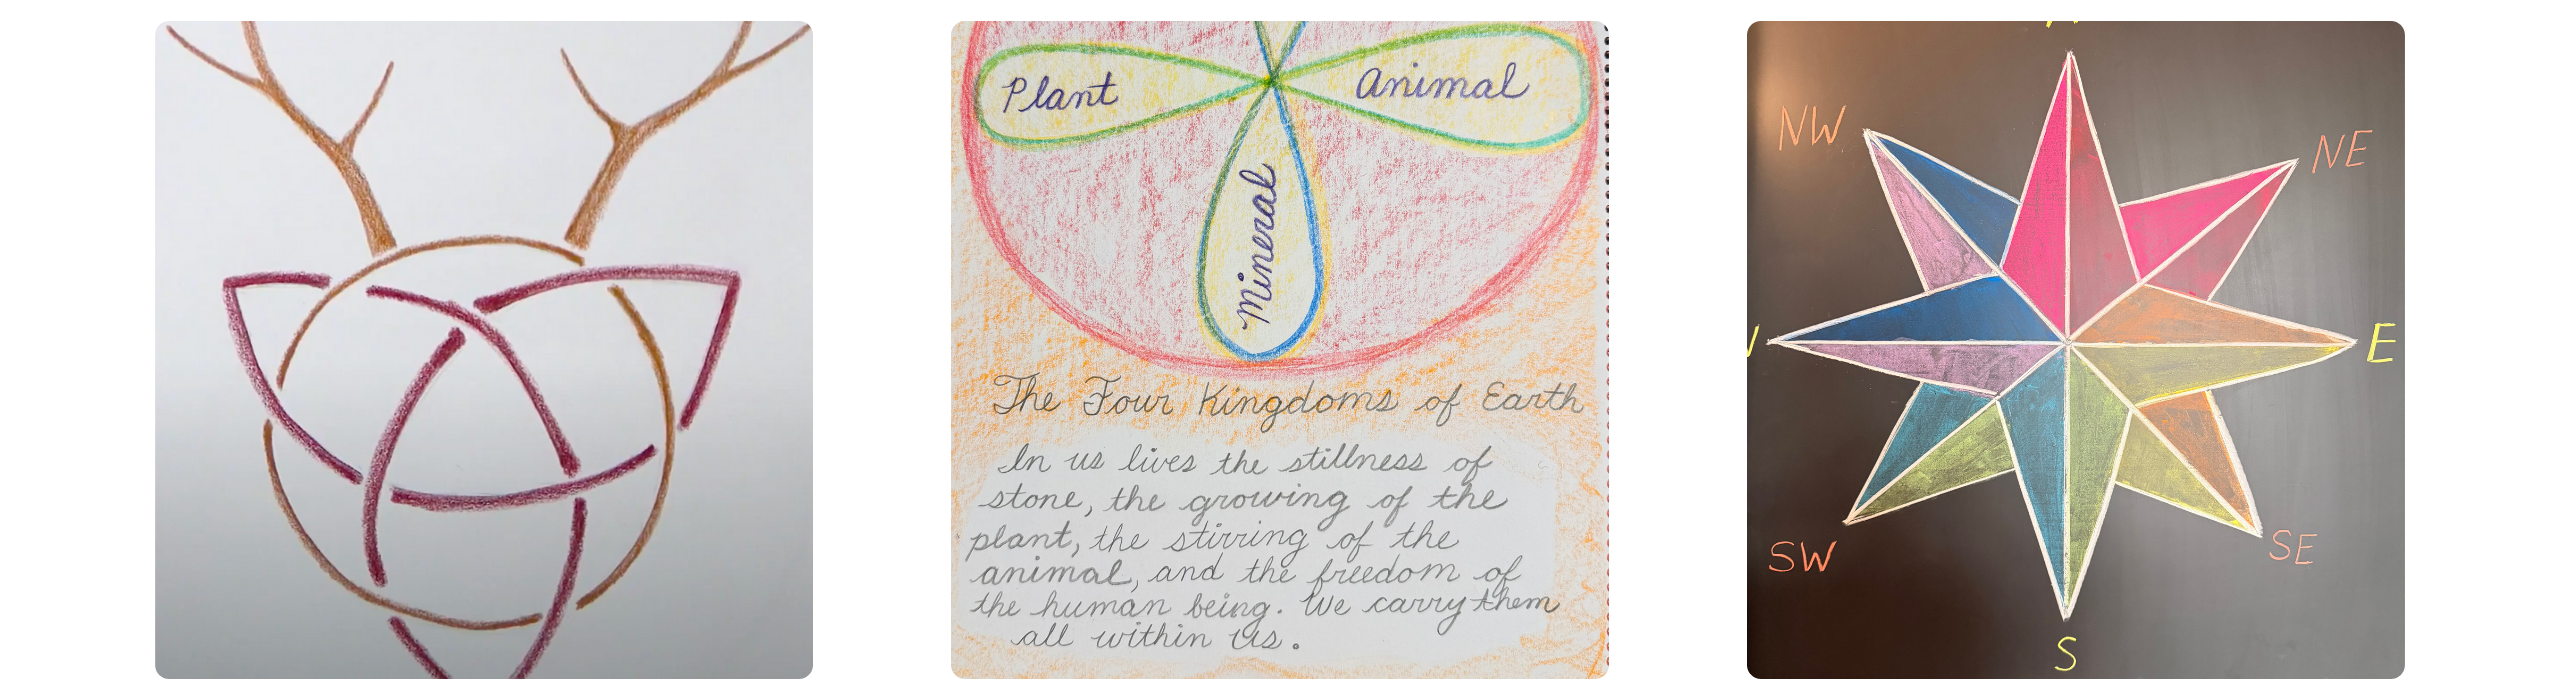 Plant
Animal
Mineral
The Four Kingdoms of Earth
In us lives the stillness of
stone, the growing of the
plant, the stirring of the
animal, and the freedom of
the human being. We carry them
all within us.
NW
NE
E
SW
SE
S